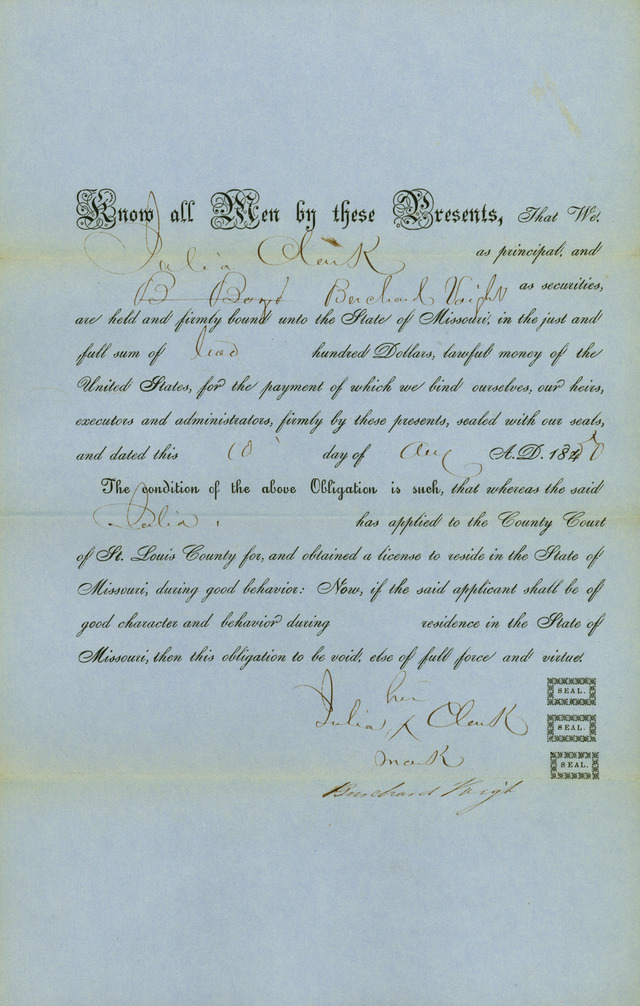 Know all Men by these Presents, That We,
Julia Clark as principal, and
B Berchard Vaight as securities,
are held and firmly bound unto the State of Missouri, in the just and
full sum of two hundred Dollars, lawful money of the
United States, for the payment of which we bind ourselves, our heirs,
executors and administrators, firmly by these presents, sealed with our seals,
and dated this 10 day of Aug A.D. 1850
The condition of the above Obligation is such, that whereas the said
Julia has applied to the County Court
of St. Louis County for, and obtained a license to reside in the State of
Missouri, during good behavior: Now, if the said applicant shall be of
good character and behavior during residence in the State of
Missouri, then this obligation to be void, else of full force and virtue.
her SEAL.
Julia x Clark SEAL.
mark SEAL.
Burchard Vaigh